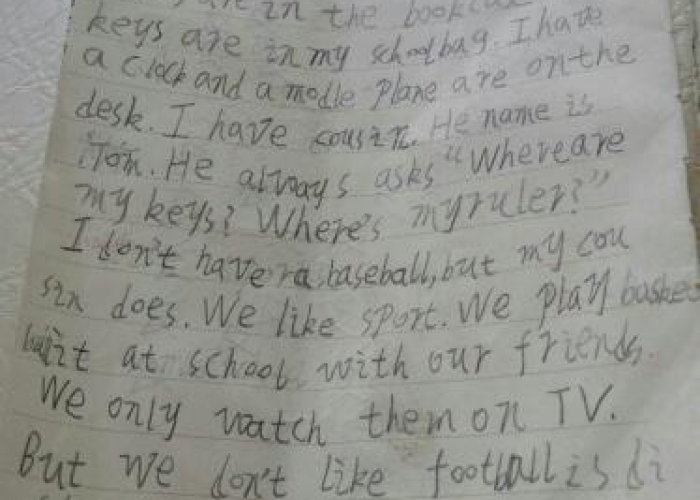 are in the bookca
keys are in my schoolbag. I have
a clock and a modle plane are on the
desk. I have cousin. He name is
Tom. He always asks "Where are
my keys? Where's my ruler?"
I don't have a baseball, but my cou
sin does. We like sport. We play baske
at school with our friends.
We only watch them on TV.
But we don't like football is di